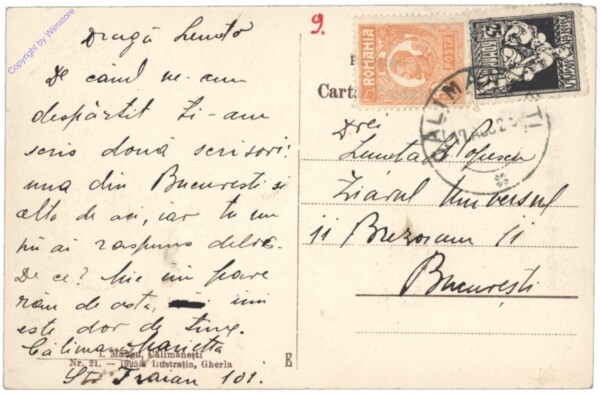 Copyright by Wimstore
Dragă Lenuto
De când ne-am
despărțit Ți-am
scris două scrisori:
una din București și
alta de aci, iar tu nu
mi ai raspuns deloc.
De ce? Mie îmi pare
rău de asta, îmi
este dor de tine.
Marietta
Călimanești
Str Traian 101.
I. Călimănești
Nr. 21. — 1925 Ilustrația, Gherla
E
9.
ROMANIA
POSTA
25
Carta
CALIMANESTI
Drei
Lenuta Popescu
Ziarul Universul
11 Brezoianu 11
București